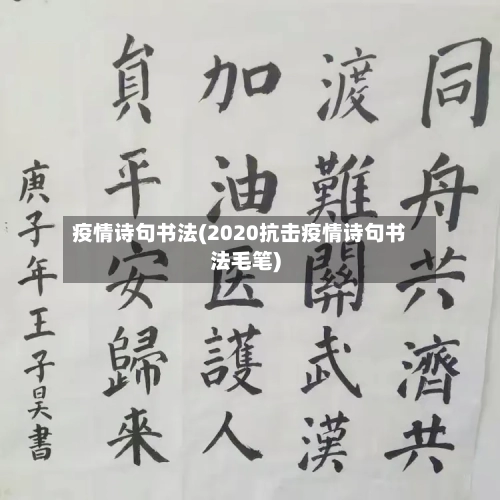 同舟共濟共
渡難關武漢
加油医護人
員平安歸來
庚子年王子昊書
疫情诗句书法(2020抗击疫情诗句书
法毛笔)